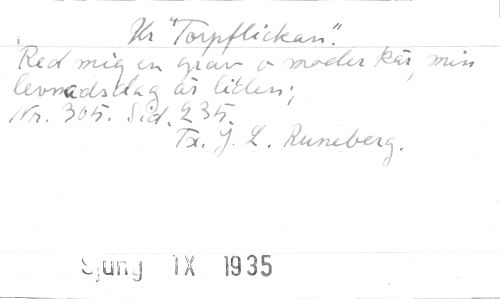 Ur "Torpflickan".
Red mig en grav o moder kär, min
levnadsdag är liten;
Nr. 305. Sid. 235.
Tx. J. L. Runeberg.
Sjung IX 1935